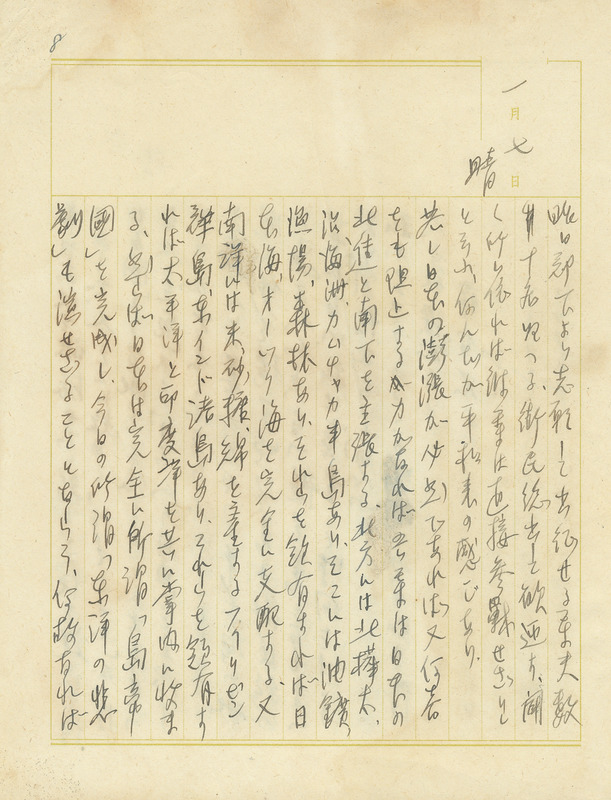 8
一月七日
晴
昨日郡下より志願して出征せる軍夫数
十名帰へる、街民総出で歓迎す、聞
く所に依れば彼等は直接参戦せざりし
と云ふ、何んだか平和裏の感じあり、
若し日本の澎漲が必然であれば又何者
をも阻止する力がなければ吾等は日本の
北進と南下を主張する、北方には北樺太、
沿海洲、カムチャカ半島あり、そこには油鑛
漁場、森林あり、それを領有すれば日
本海、オーツク海を完全に支配する、又
南洋には米、砂糖、綿を産するフィリピン
群島、東インド諸島あり、これを領有す
れば太平洋と印度洋を共に掌内に收ま
る、然れば日本は完全に所謂「島帝
國」を完成し、今日の所謂「東洋の悲
劇」も演ぜざることとならう、何故なれば